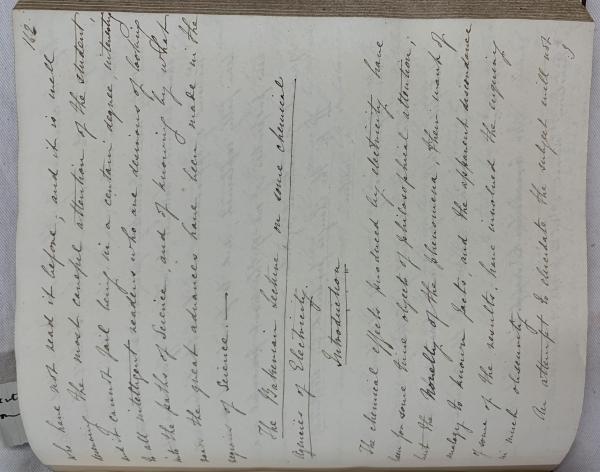 186
who have not read it before; and it is well
worthy the most careful attention of the student,
and it cannot fail being in a certain degree, interesting
to all intelligent readers who are desirous of looking
into the paths of Science, and of knowing by what
means the great advances have been made in the
regions of Science. —
The Bakerian lecture, on some chemical
Agencies of Electricity.
Introduction
The chemical effects produced by electricity have
been for some time objects of philosophical attention;
but the Novelty of the phenomena, their want of
analogy to known facts, and the apparent discordance
of some of the results, have involved the enquiry
in much obscurity.
An attempt to elucidate the subject will not